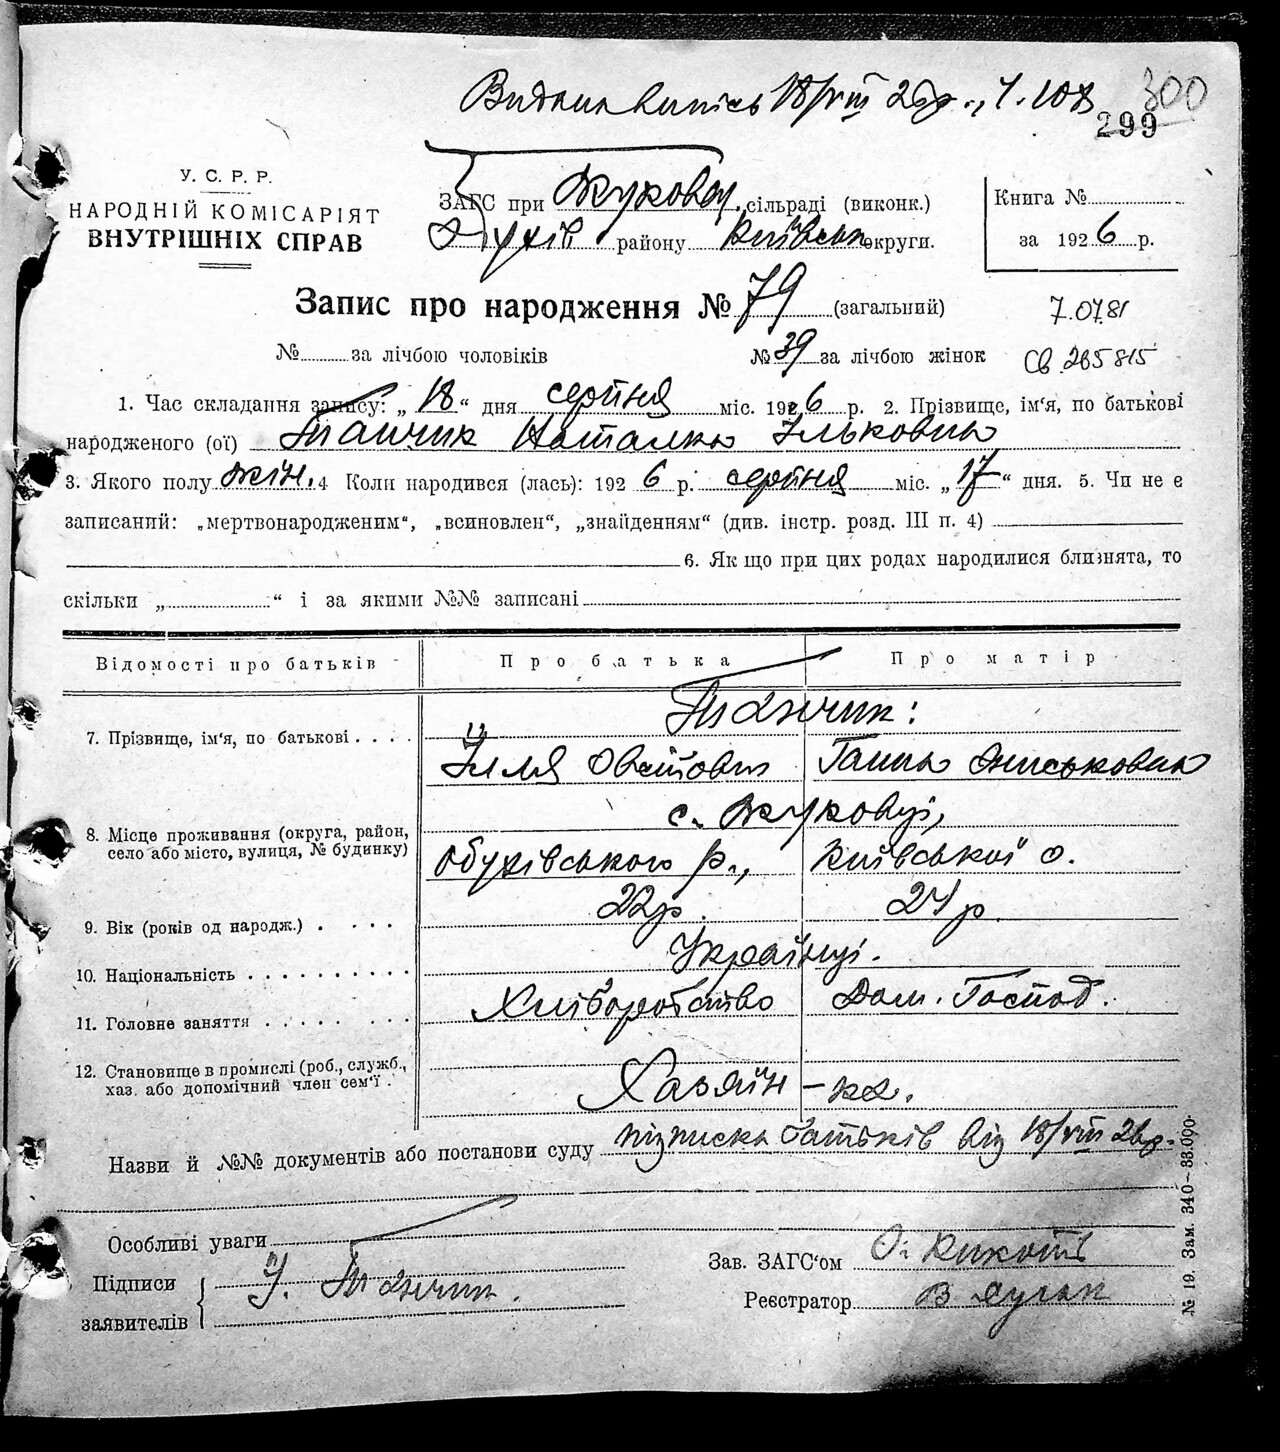 Видана випись 18/VIII 26р., Ч. 108
300
299
У. С. Р. Р.
НАРОДНІЙ КОМІСАРІЯТ
ВНУТРІШНІХ СПРАВ
ЗАГС при Жуковец. сільраді (виконк.)
Обухів району Київськ округи.
Книга №
за 1926 р.
Запис про народження № 79 (загальний)
7.07.81
№ за лічбою чоловіків № 39 за лічбою жінок
св. 265815
1. Час складання запису: „18“ дня серпня міс. 1926 р. 2. Прізвище, ім'я, по батькові
народженого (ої) Танчик Наталка Ільковна
3. Якого полу жін. 4 Коли народився (лась): 1926 р. серпня міс. „17“ дня. 5. Чи не є
записаний: „мертвонародженим“, „всиновлен“, „знайденням“ (див. інстр. розд. III п. 4)
6. Як що при цих родах народилися близнята, то
скільки „ “ і за якими №№ записані
Відомості про батьків Про батька Про матір
Танчик:
7. Прізвище, ім'я, по батькові . . . .
Ілля Овстович ГаннаОниськовна
с. Жуковці,
8. Місце проживання (округа, район,
село або місто, вулиця, № будинку)
Обухівського р., Київської о.
9. Вік (років од народж.) . . . . 22 р. 24 р.
10. Національність . . . . . . . . . . Українці.
11. Головне заняття . . . . . . . . Хліборобство Дом. Господ.
12. Становище в промислі (роб., служб.,
хаз. або допомічний член сем'ї .
Хазяїн – ка.
Назви й №№ документів або постанови суду підписка батьків від 18/VIII 26р.
Особливі уваги
Підписи
заявителів
І. Танчик.
Зав. ЗАГС'ом
Реєстратор
№ 19. Зам. 340–33.000